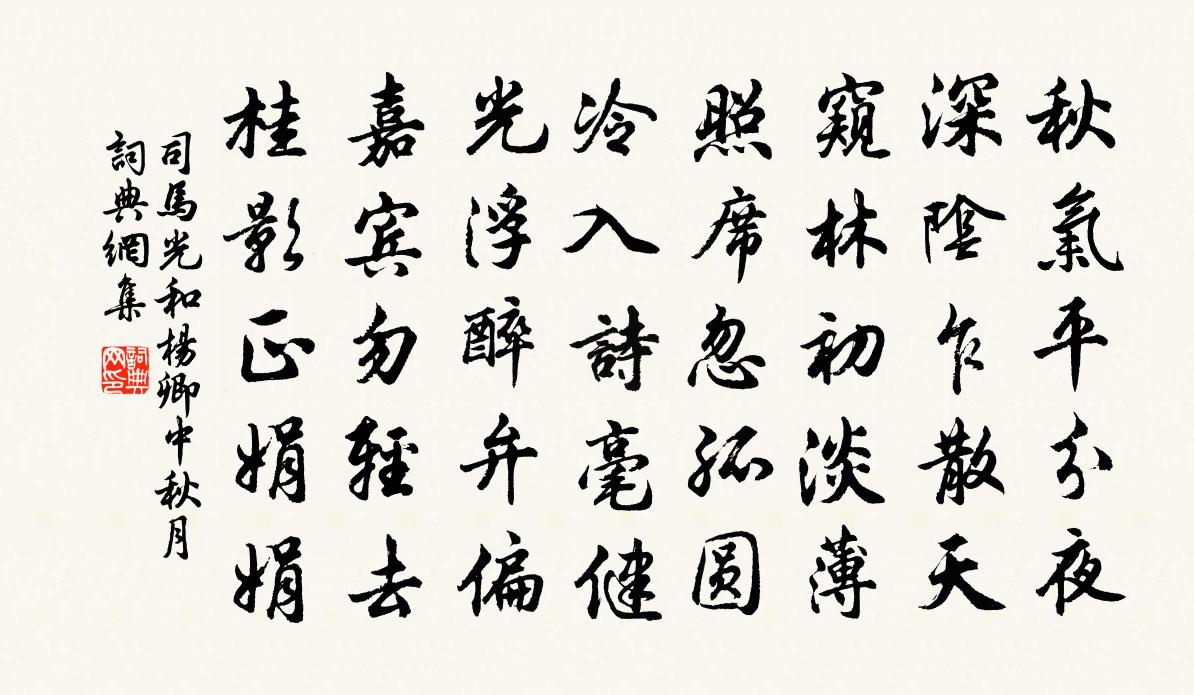 秋氣平分夜
深陰乍散天
窺林初淡薄
照席忽孤圓
冷入詩毫健
光浮醉弁偏
嘉賓勿輕去
桂影正娟娟
司馬光和楊卿中秋月
詞典網集
詞典网印